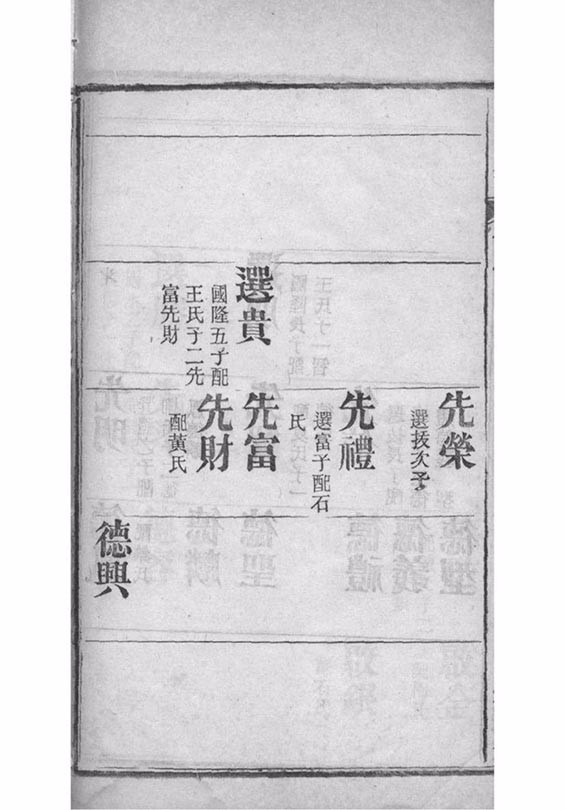 先榮
選拔次子
先禮
選富子配石
氏
選貴
國隆五子配
王氏子二先
富先財
先富
先財
配黃氏
德興